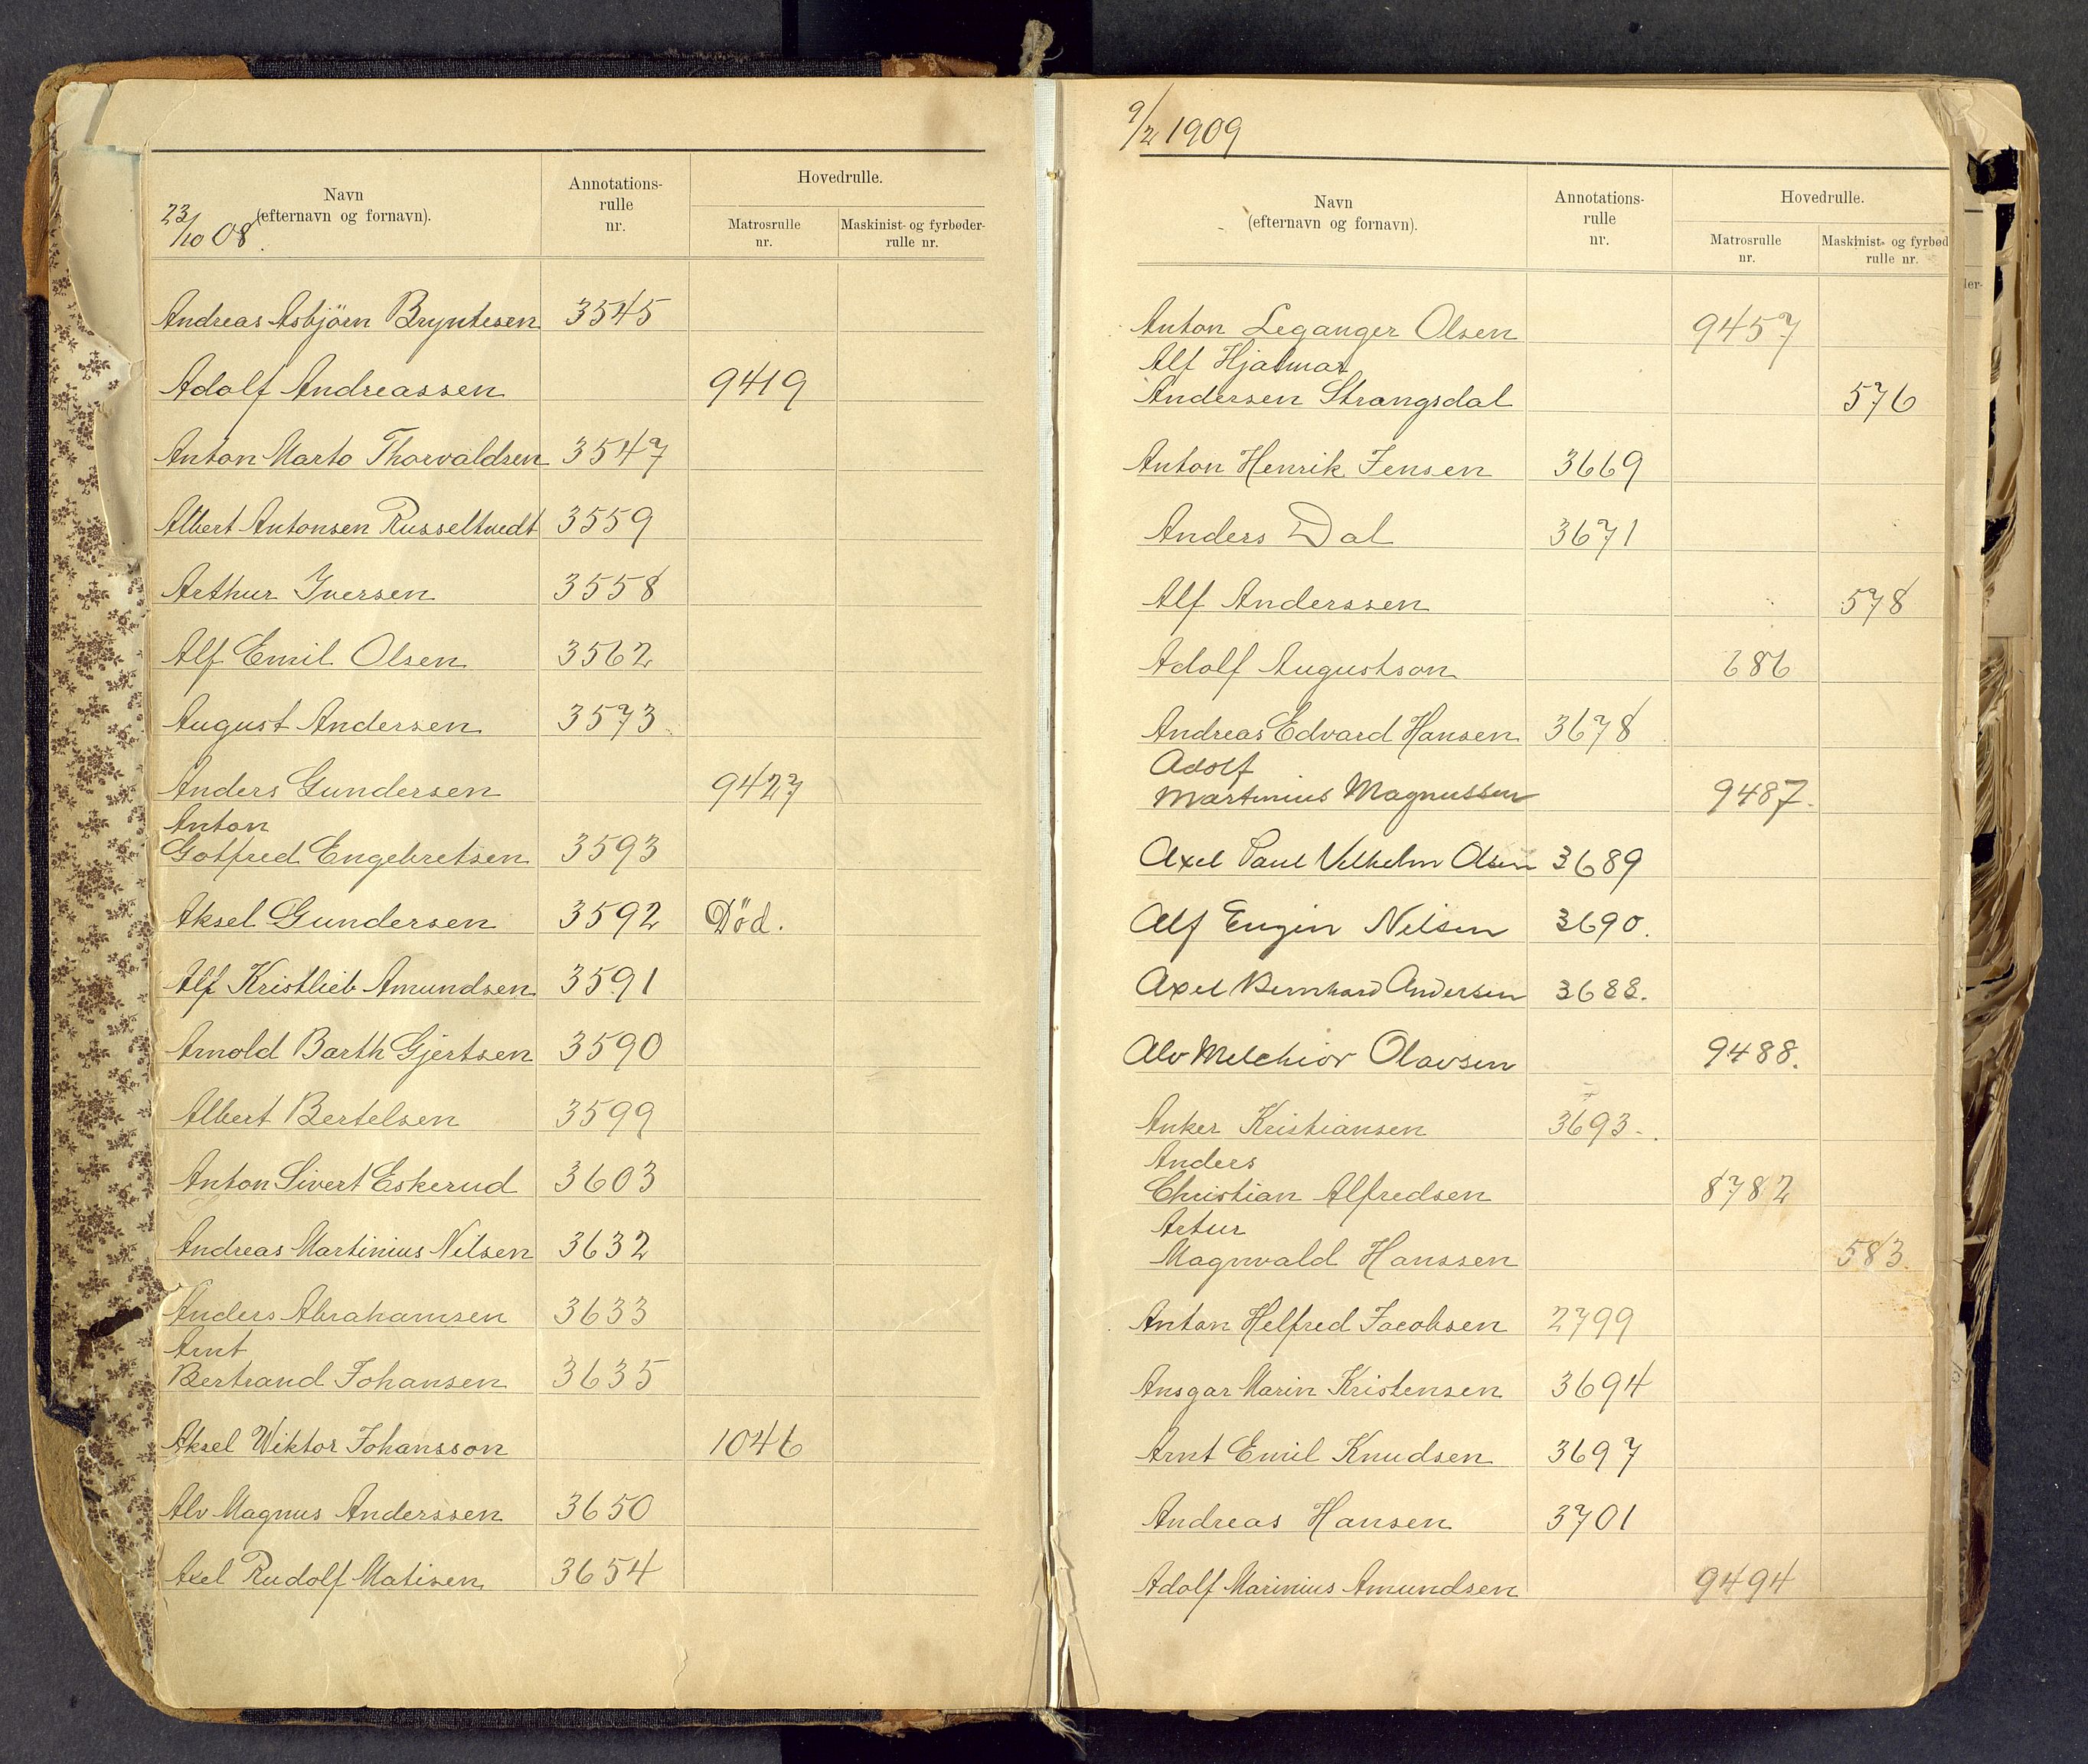 Navn
(efternavn og fornavn).
Annotations-
rulle
nr.
Hovedrulle.
Matrosrulle
nr.
Maskinist- og fyrbøder-
rulle nr.
23/10 08.
Andreas Asbjörn Bryntesen 3545
Adolf Andreassen 9419
Anton Marto Thorvaldsen 3547
Albert Antonsen Russeltvedt 3559
Arthur Iversen 3558
Alf Emil Olsen 3562
August Andersen 3573
Anders Gundersen 9427
Anton
Gotfred Engebretsen 3593
Aksel Gundersen 3592 Död.
Alf Kristlieb Amundsen 3591
Arnold Barth Gjertsen 3590
Albert Bertelsen 3599
Anton Sivert Eskerud 3603
Andreas Martinius Nilsen 3632
Anders Abrahamsen 3633
Arnt
Bertrand Johansen 3635
Aksel Wiktor Johansson 1046
Alv Magnus Anderssen 3650
Axel Rudolf Matisen 3654
9/2 1909
Navn
(efternavn og fornavn).
Annotations-
rulle
nr.
Hovedrulle.
Matrosrulle
nr.
Maskinist- og fyrbød
rulle nr.
Anton Leganger Olsen 9457
Alf Hjalmar
Andersen Strangsdal 576
Anton Henrik Jensen 3669
Anders Dal 3671
Alf Anderssen 578
Adolf Augustson 686
Andreas Edvard Hansen 3678
Adolf
Martinius Magnussen 9487.
Axel Paul Vilhelm Olsen 3689
Alf Eugin Nilsen 3690.
Axel Bernhard Andersen 3688.
Alv Melchior Olavsen 9488.
Anker Kristiansen 3693.
Anders
Christian Alfredsen 8782
Artur
Magnvald Hanssen 583.
Anton Helfred Jacobsen 2799
Ansgar Marin Kristensen 3694
Arnt Emil Knudsen 3697
Andreas Hansen 3701
Adolf Marinius Amundsen 9494